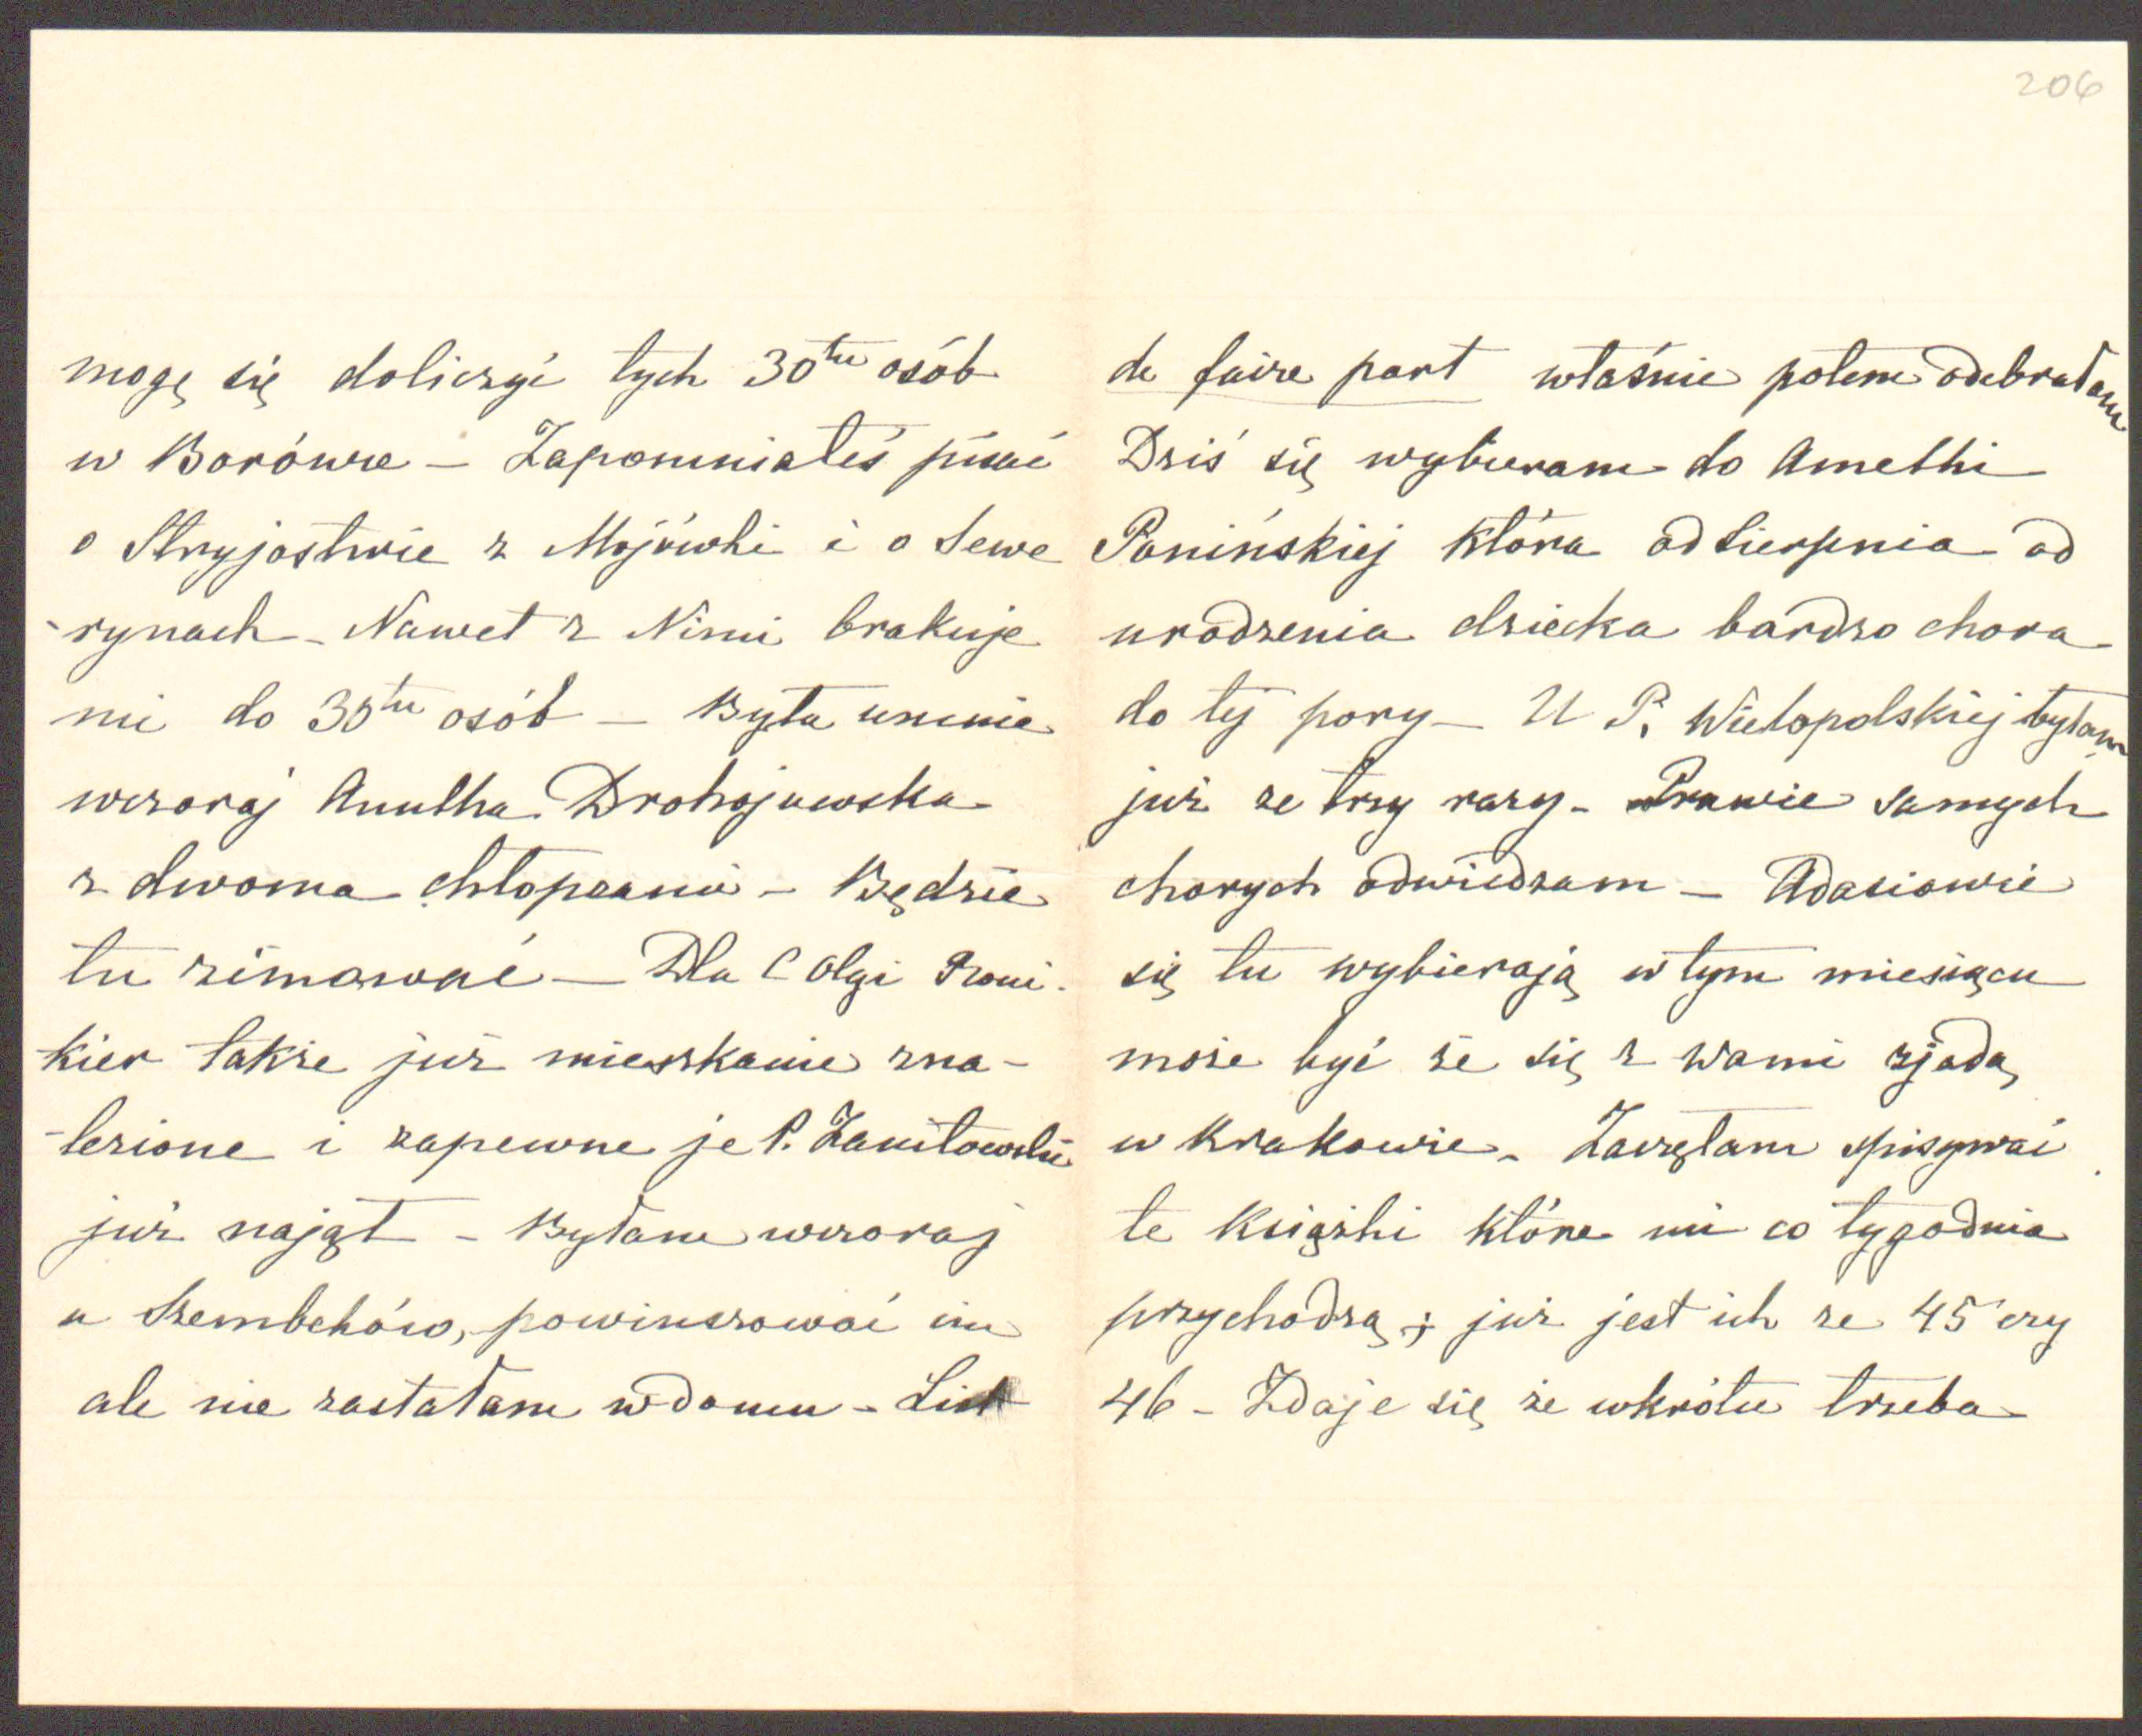 206
mogę się doliczyć tych 30tu osób
w Borówce – Zapomniałeś pisać
o Stryjostwie z Mojówki i o Sewe
-rynach – Nawet z Nimi brakuje
mi do 30tu osób – Była u mnie
wczoraj Anulka Drohojowska
z dwoma chłopcami – Będzie
tu zimować – Dla C Olgi
kier także już mieszkanie zna-
-lezione i zapewne je P.
już najął – Byłam wczoraj
u Szembeków, powinszować im
ale nie zastałam w domu – List
de faire part właśnie potem odebrałam
Dziś się wybieram do Amelki
Ponińskiej która od sierpnia od
urodzenia dziecka bardzo chora
do tej pory – U P. Wielopolskiej byłam
już ze trzy razy – Prawie samych
chorych odwiedzam – Adasiowie
się tu wybierają w tym miesiącu
może być że się z Wami zjadą
w Krakowie – Zaczęłam spisywać
te książki które mi co tygodnia
przychodzą; już jest ich ze 45 czy
46 – Zdaje się że wkrótce trzeba